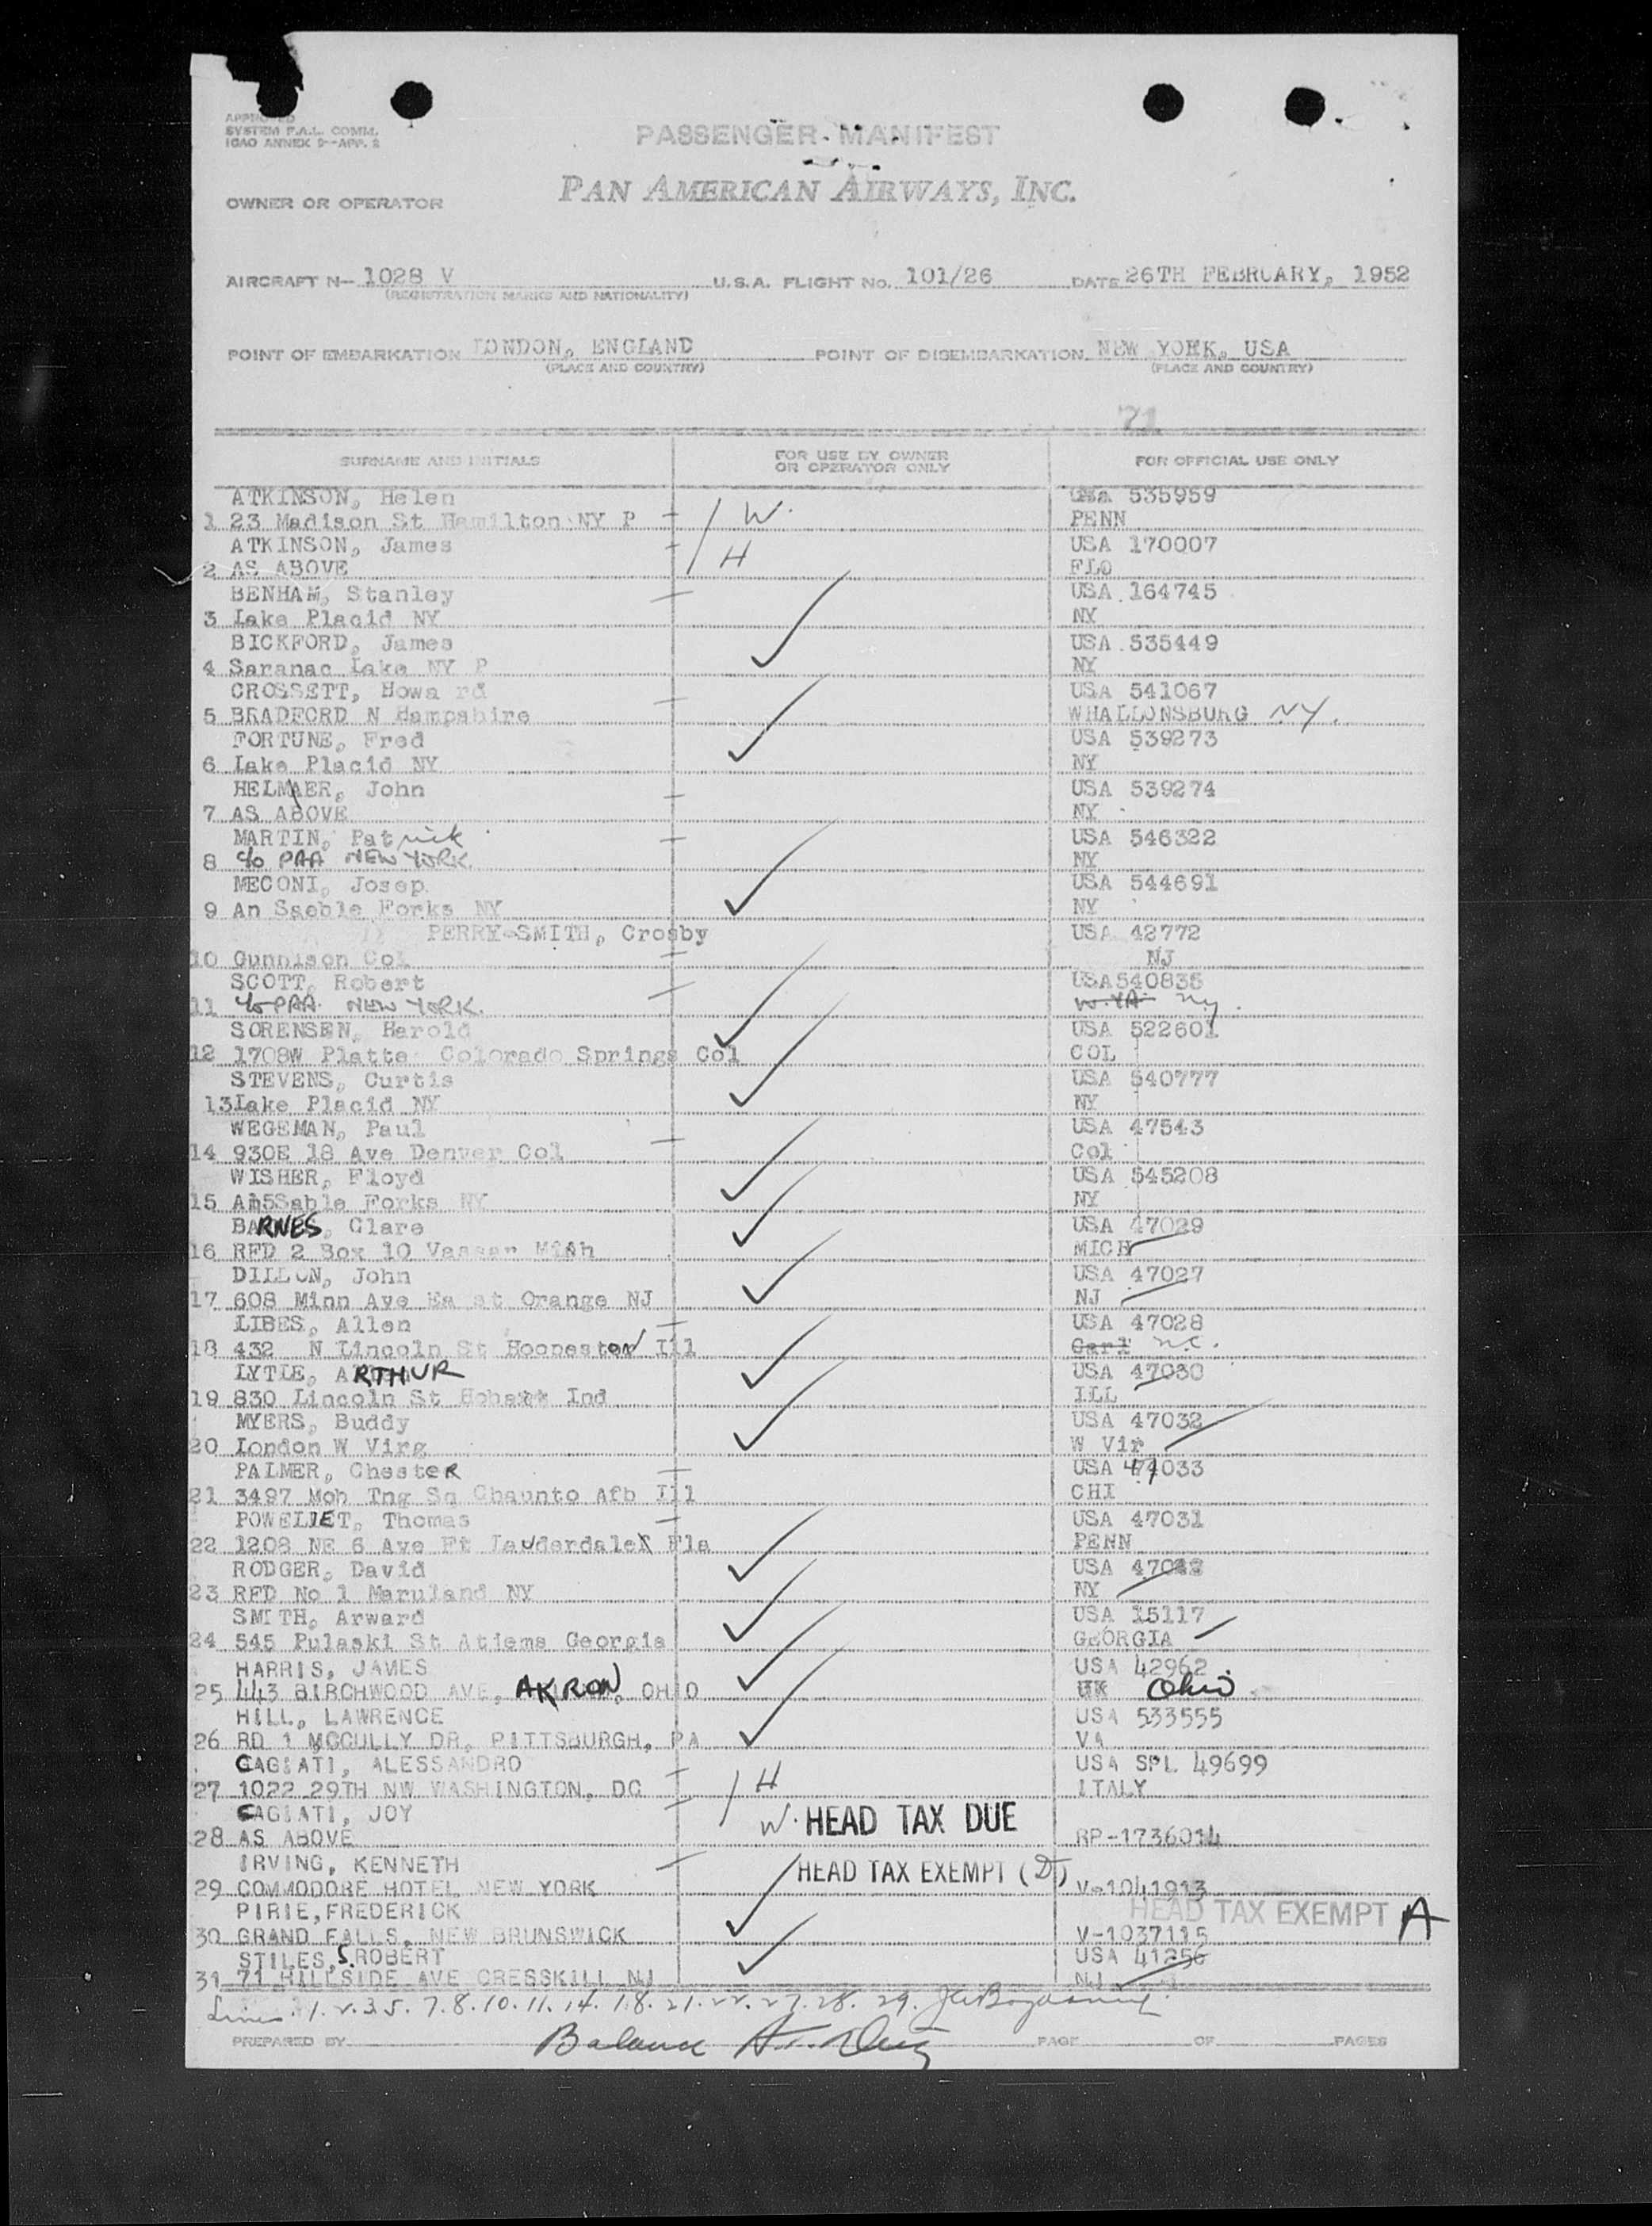 APPROVED
SYSTEM F.A.L. COMM.
ICAO ANNEX 9--APP. 2
PASSENGER MANIFEST
PAN AMERICAN AIRWAYS, INC.
OWNER OR OPERATOR
AIRCRAFT N- 1028 V U.S.A. FLIGHT No. 101/26 DATE 26TH FEBRUARY, 1952
(REGISTRATION MARKS AND NATIONALITY)
POINT OF EMBARKATION LONDON, ENGLAND POINT OF DISEMBARKATION NEW YORK, USA
(PLACE AND COUNTRY) (PLACE AND COUNTRY)
71
SURNAME AND INITIALS FOR USE BY OWNER OR OPERATOR ONLY FOR OFFICIAL USE ONLY
ATKINSON, Helen USA 535959
1 23 Madison St Hamilton NY P W. PENN
ATKINSON, James USA 170007
2 AS ABOVE H FLO
BENHAM, Stanley USA 164745
3 Lake Placid NY NY
BICKFORD, James USA 535449
4 Saranac Lake NY P NY
CROSSETT, Howa rd USA 541067
5 BRADFORD N Hampshire WHALLONSBURG NY.
FORTUNE, Fred USA 539273
6 Lake Placid NY NY
HELMAER, John USA 539274
7 AS ABOVE NY
MARTIN, Patrick USA 546322
8 c/o PAA NEW YORK. NY
MECONI, Josep USA 544691
9 An Saeble Forks NY NY
PERRY-SMITH, Crosby USA 42772
10 Gunnison Col NJ
SCOTT, Robert USA540835
11 c/o PAA NEW YORK. W.VA NY.
SORENSEN, Harold USA 522601
12 1708W Platte Colorado Springs Col COL
STEVENS, Curtis USA 540777
13Lake Placid NY NY
WEGEMAN, Paul USA 47543
14 930E 18 Ave Denver Col Col
WISHER, Floyd USA 545208
15 Sable Forks NY NY
BARNES, Clare USA 47029
16 RFD 2 Box 10 Vassar Mich MICH
DILLON, John USA 47027
17 608 Minn Ave Ea st Orange NJ NJ
LIBES, Allen USA 47028
18 432 N Lincoln St Hoopeston Ill Carl N.C.
LYTLE, ARTHUR USA 47030
19 830 Lincoln St Hobart Ind ILL
MYERS, Buddy USA 47032
20 London W Virg W Vir
PALMER, Chester USA 47033
21 3497 Mob Tng Sq Chaunto Afb Ill CHI
POWELIET, Thomas USA 47031
22 1208 NE 6 Ave Ft Lauderdale Fla PENN
RODGER, David USA
23 RFD No 1 Maruland NY NY
SMITH, Arward USA 15117
24 545 Pulaski St Atiems Georgia GEORGIA
HARRIS, JAMES USA 42962
25 443 BIRCHWOOD AVE, AKRON, OHIO UK Ohio
HILL, LAWRENCE USA 533555
26 RD 1 MCCULLY DR, PITTSBURGH, PA VA
CAGIATI, ALESSANDRO USA SPL 49699
27 1022 29TH NW WASHINGTON, DC H ITALY
CAGIATI, JOY W. HEAD TAX DUE
28 AS ABOVE RP-1736014
IRVING, KENNETH HEAD TAX EXEMPT (D)
29 COMMODORE HOTEL NEW YORK V-1041913
PIRIE,FREDERICK HEAD TAX EXEMPT A
30 GRAND FALLS, NEW BRUNSWICK V-1037115
STILES, S. ROBERT USA 41256
31 71 HILLSIDE AVE CRESSKILL NJ NJ
Lines 1. 2. 3. 5. 7. 8. 10. 11. 14. 18. 21. 22. 27. 28. 29.
Balance
PREPARED BY PAGE OF PAGES